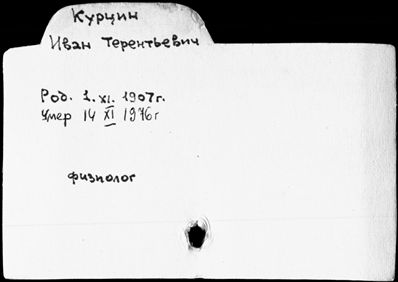 Курцин
Иван Терентьевич
Род. 1. XI. 1907г.
Умер 14 XI 1976г
физиолог